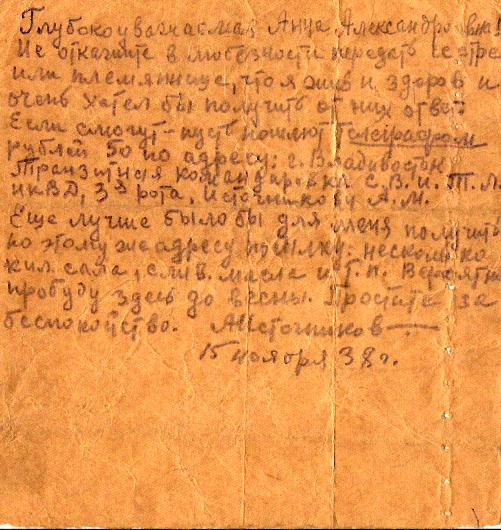 Глубокоуважаемая Анна Александровна!
Не откажите в любезности передать сестре
или племяннице, что я жив и здоров и
очень хотел бы получить от них ответ.
Если смогут - пусть пошлют телеграфом
рублей 50 по адресу: г. Владивосток
Транзитная командировка С.В.И.Т.Л.
НКВД, 3я рота, Источникову А.М.
Еще лучше было бы для меня получить
по этому же адресу посылку: несколько
кил. сала, слив. масла и т.п. Вероятно
пробуду здесь до весны. Простите за
беспокойство. АИсточников
15 ноября 38 г.